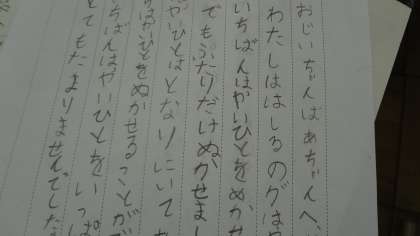 おじいちゃんばあちゃんへ、
わたしははしるのグは
いちばんはやいひとをめかせ
でもふたりだけぬかせまし
やいひとはとなりにいて
をぬかせることが
ちばんはやいひとをいっぱ
とてもたまりませんでした